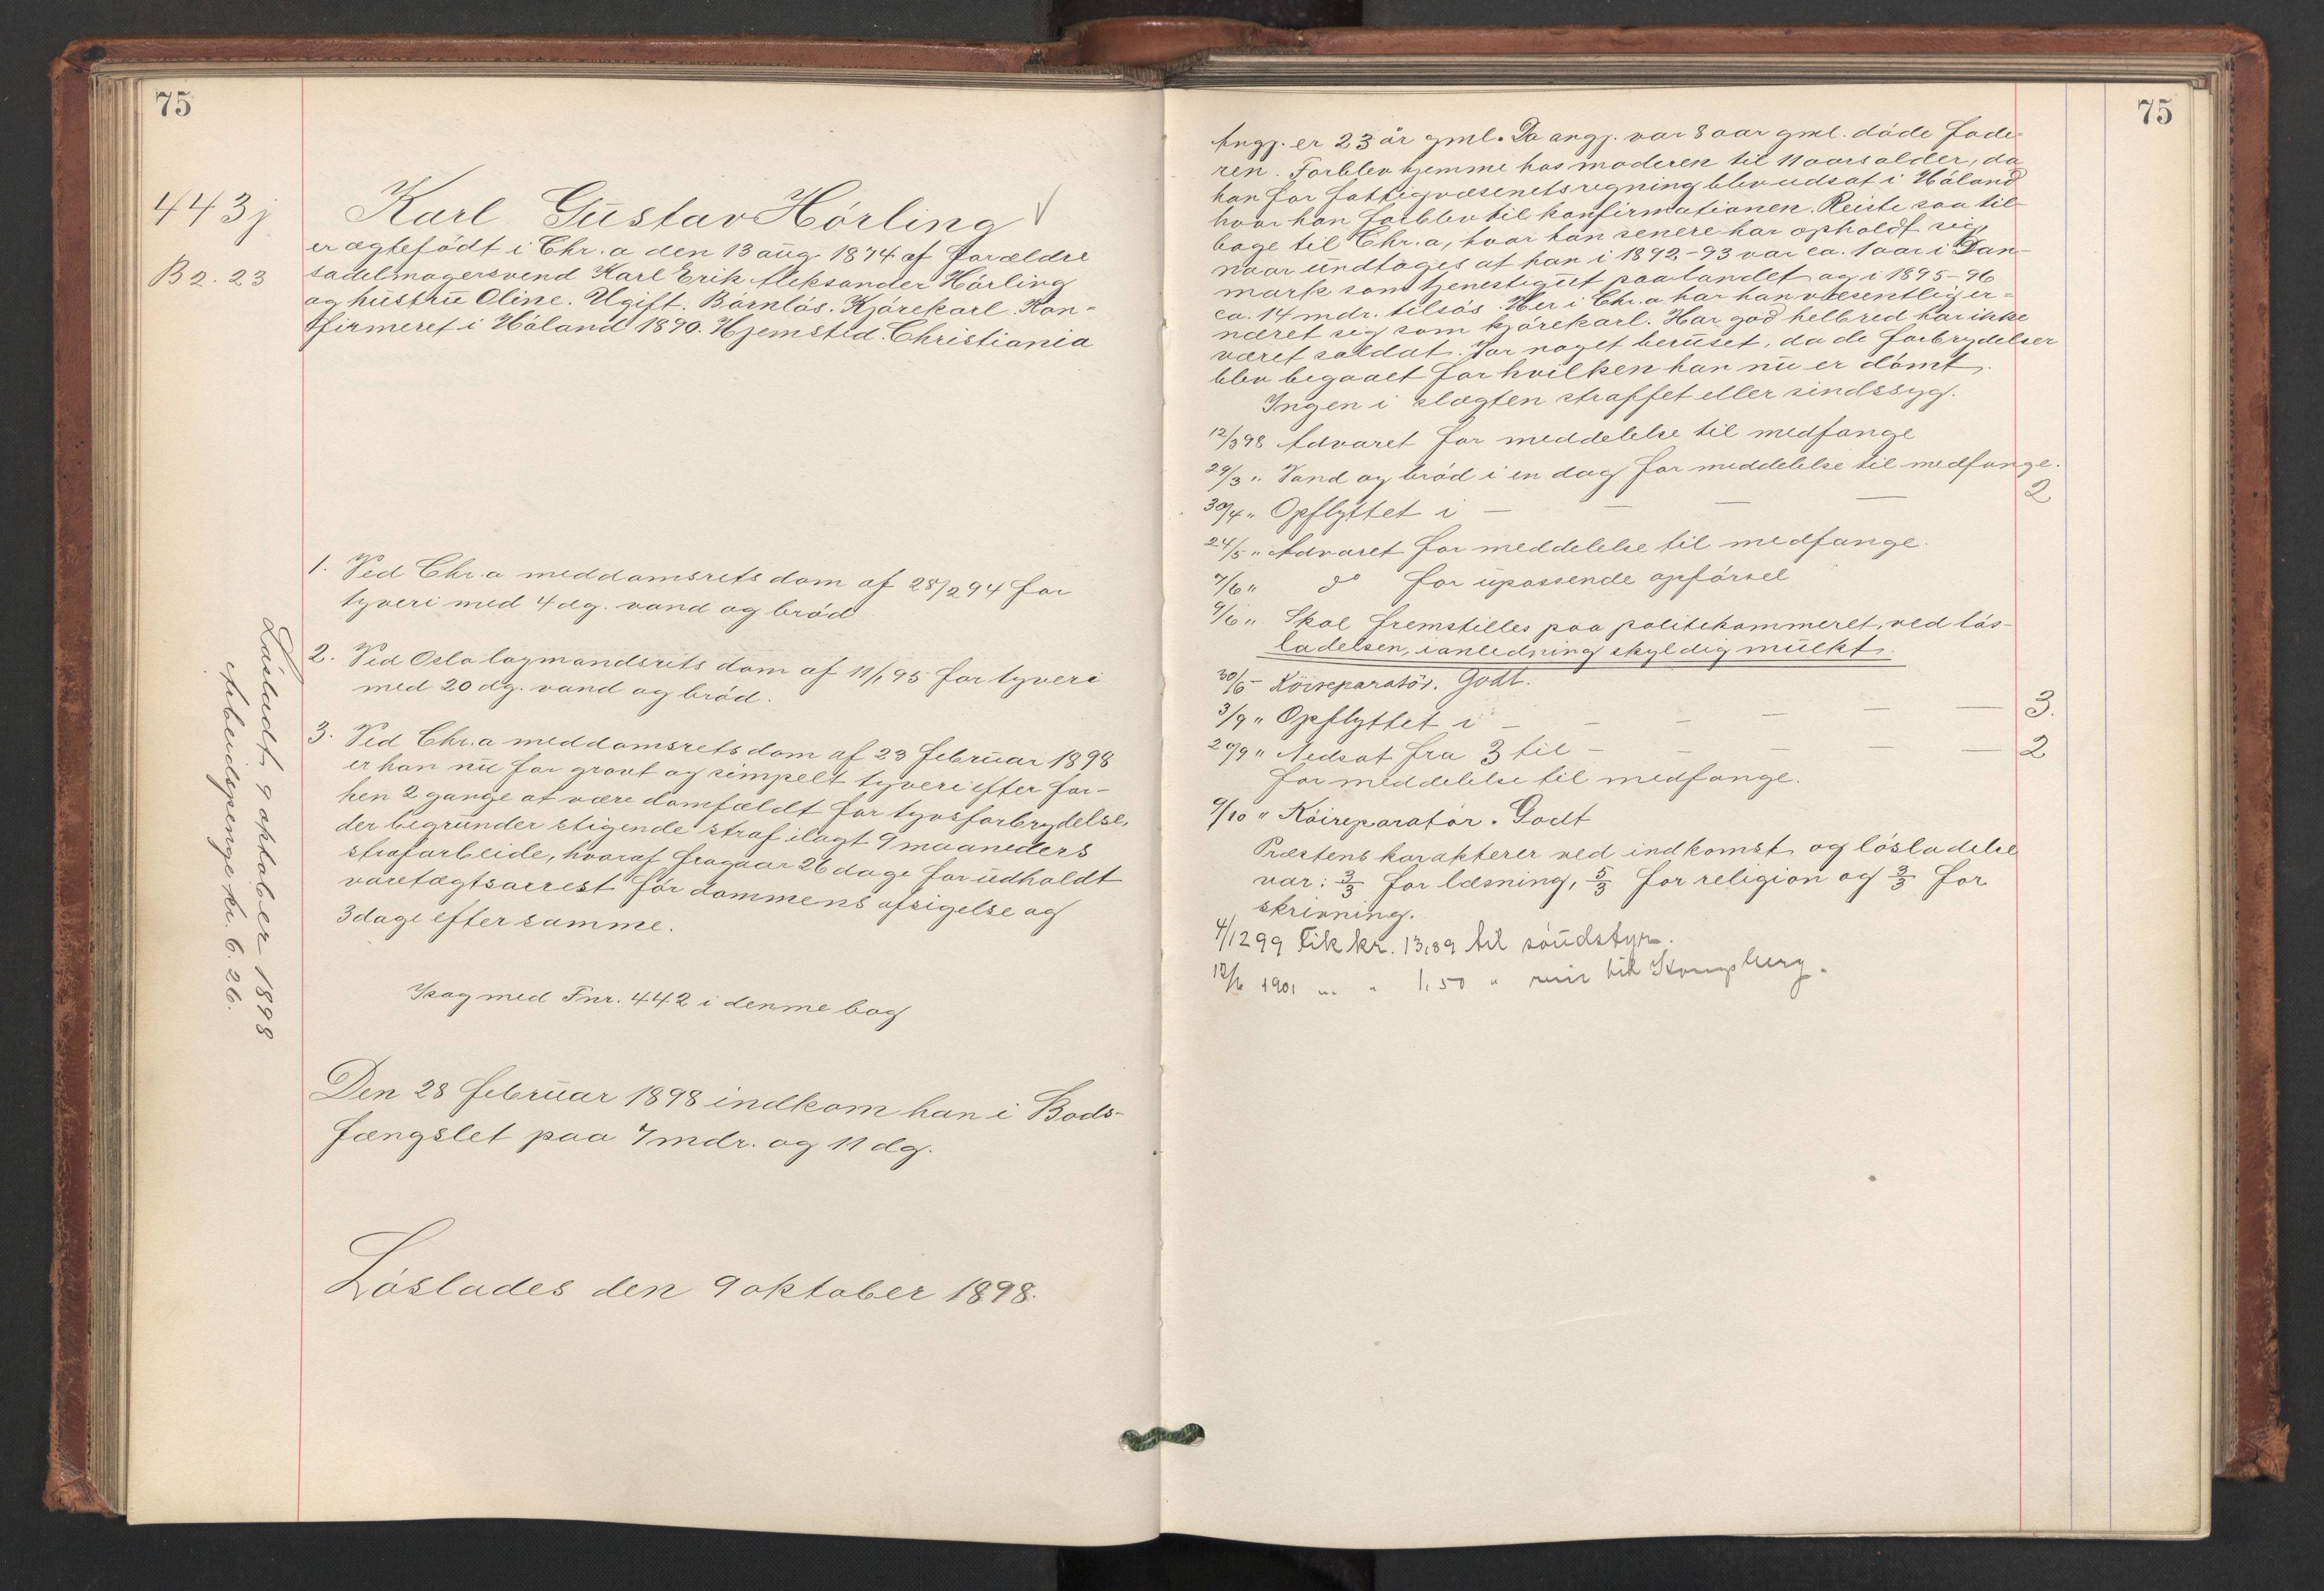 75
443 j
B 2. 23
Karl Gustav Hörling
er ægtefödt i Chr.a den 13 aug. 1874 af forældre
sadelmagersvend Karl Erik Aleksander Hörling
og hustru Oline. Ugift. Barnlös. Kjörekarl. Kon-
firmeret i Höland 1890. Hjemsted. Christiania
1. Ved Chr.a meddomsrets dom af 28/2 94 for
tyveri med 4 dg. vand og bröd
2. Ved Oslo lagmandsrets dom af 11/1 95 for tyveri
med 20 dg. vand og bröd.
3. Ved Chr.a meddomsrets dom af 23 februar 1898
er han nu for grovt og simpelt tyveri efter for-
hen 2 gange at være domfældt for tyvsforbrydelse,
der begrunder stigende straf ilagt 9 maaneders
strafarbeide, hvoraf fragaar 26 dage for udholdt
varetægtsarrest för dommens afsigelse og
3 dage efter samme.
I sag med Fnr. 442 i denne bog
Den 28 februar 1898 indkom han i Bods-
fængslet paa 7 mdr. og 11 dg.
Löslades den 9 oktober 1898.
Lösladt 9 oktober 1898
Arbeidspenge kr. 6. 26.
75
Angj. er 23 år gml. Da angj. var 8 aar gml. döde fade-
ren. Forblev hjemme hos moderen til 11 aars alder, da
han for fattigvæsenets regning blev udsat i Höland
hvor han forblev til konfirmationen. Reiste saa til-
bage til Chr.a, hvor han senere har opholdt sig,
naar undtages at han i 1892-93 var ca. 1 aar i Dan-
mark som tjenestegut paa landet og i 1895-96
ca. 14 mdr. tilsös. Her i Chr.a har han væsentlig er-
næret sig som kjörekarl. Har god helbred har ikke
været soldat. Var noget beruset, da de forbrydelser
blev begaaet for hvilken han nu er dömt.
Ingen i slægten straffet eller sindssyg.
12/3 98 Advaret for meddelelse til medfange
29/3 " Vand og bröd i en dag for meddelelse til medfange.
30/4 " Opflyttet i — — — — 2
24/5 " Advaret for meddelelse til medfange.
7/6 " do for upassende opförsel
9/6 " Skal fremstilles paa politikammeret, ved lös-
ladelsen, i anledning skyldig mulkt.
30/6 - Köireparatör. Godt.
3/9 " Opflyttet i — — — — — — 3.
20/9 " Nedsat fra 3 til — — — — — 2
for meddelelse til medfange.
9/10 " Köireparatör. Godt
Præstens karakterer ved indkomst og lösladelse
var: 3/3 for læsning, 5/3 for religion og 3/3 for
skrivning.
4/12 99 Fik kr. 13,89 til
12/6 1901 " " 1,50 " til Kongsberg.